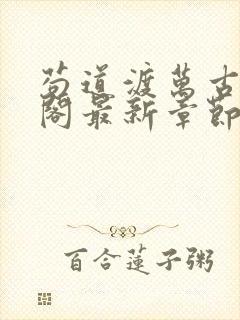 苟道渡萬古
閣最新章節
百合蓮子粥